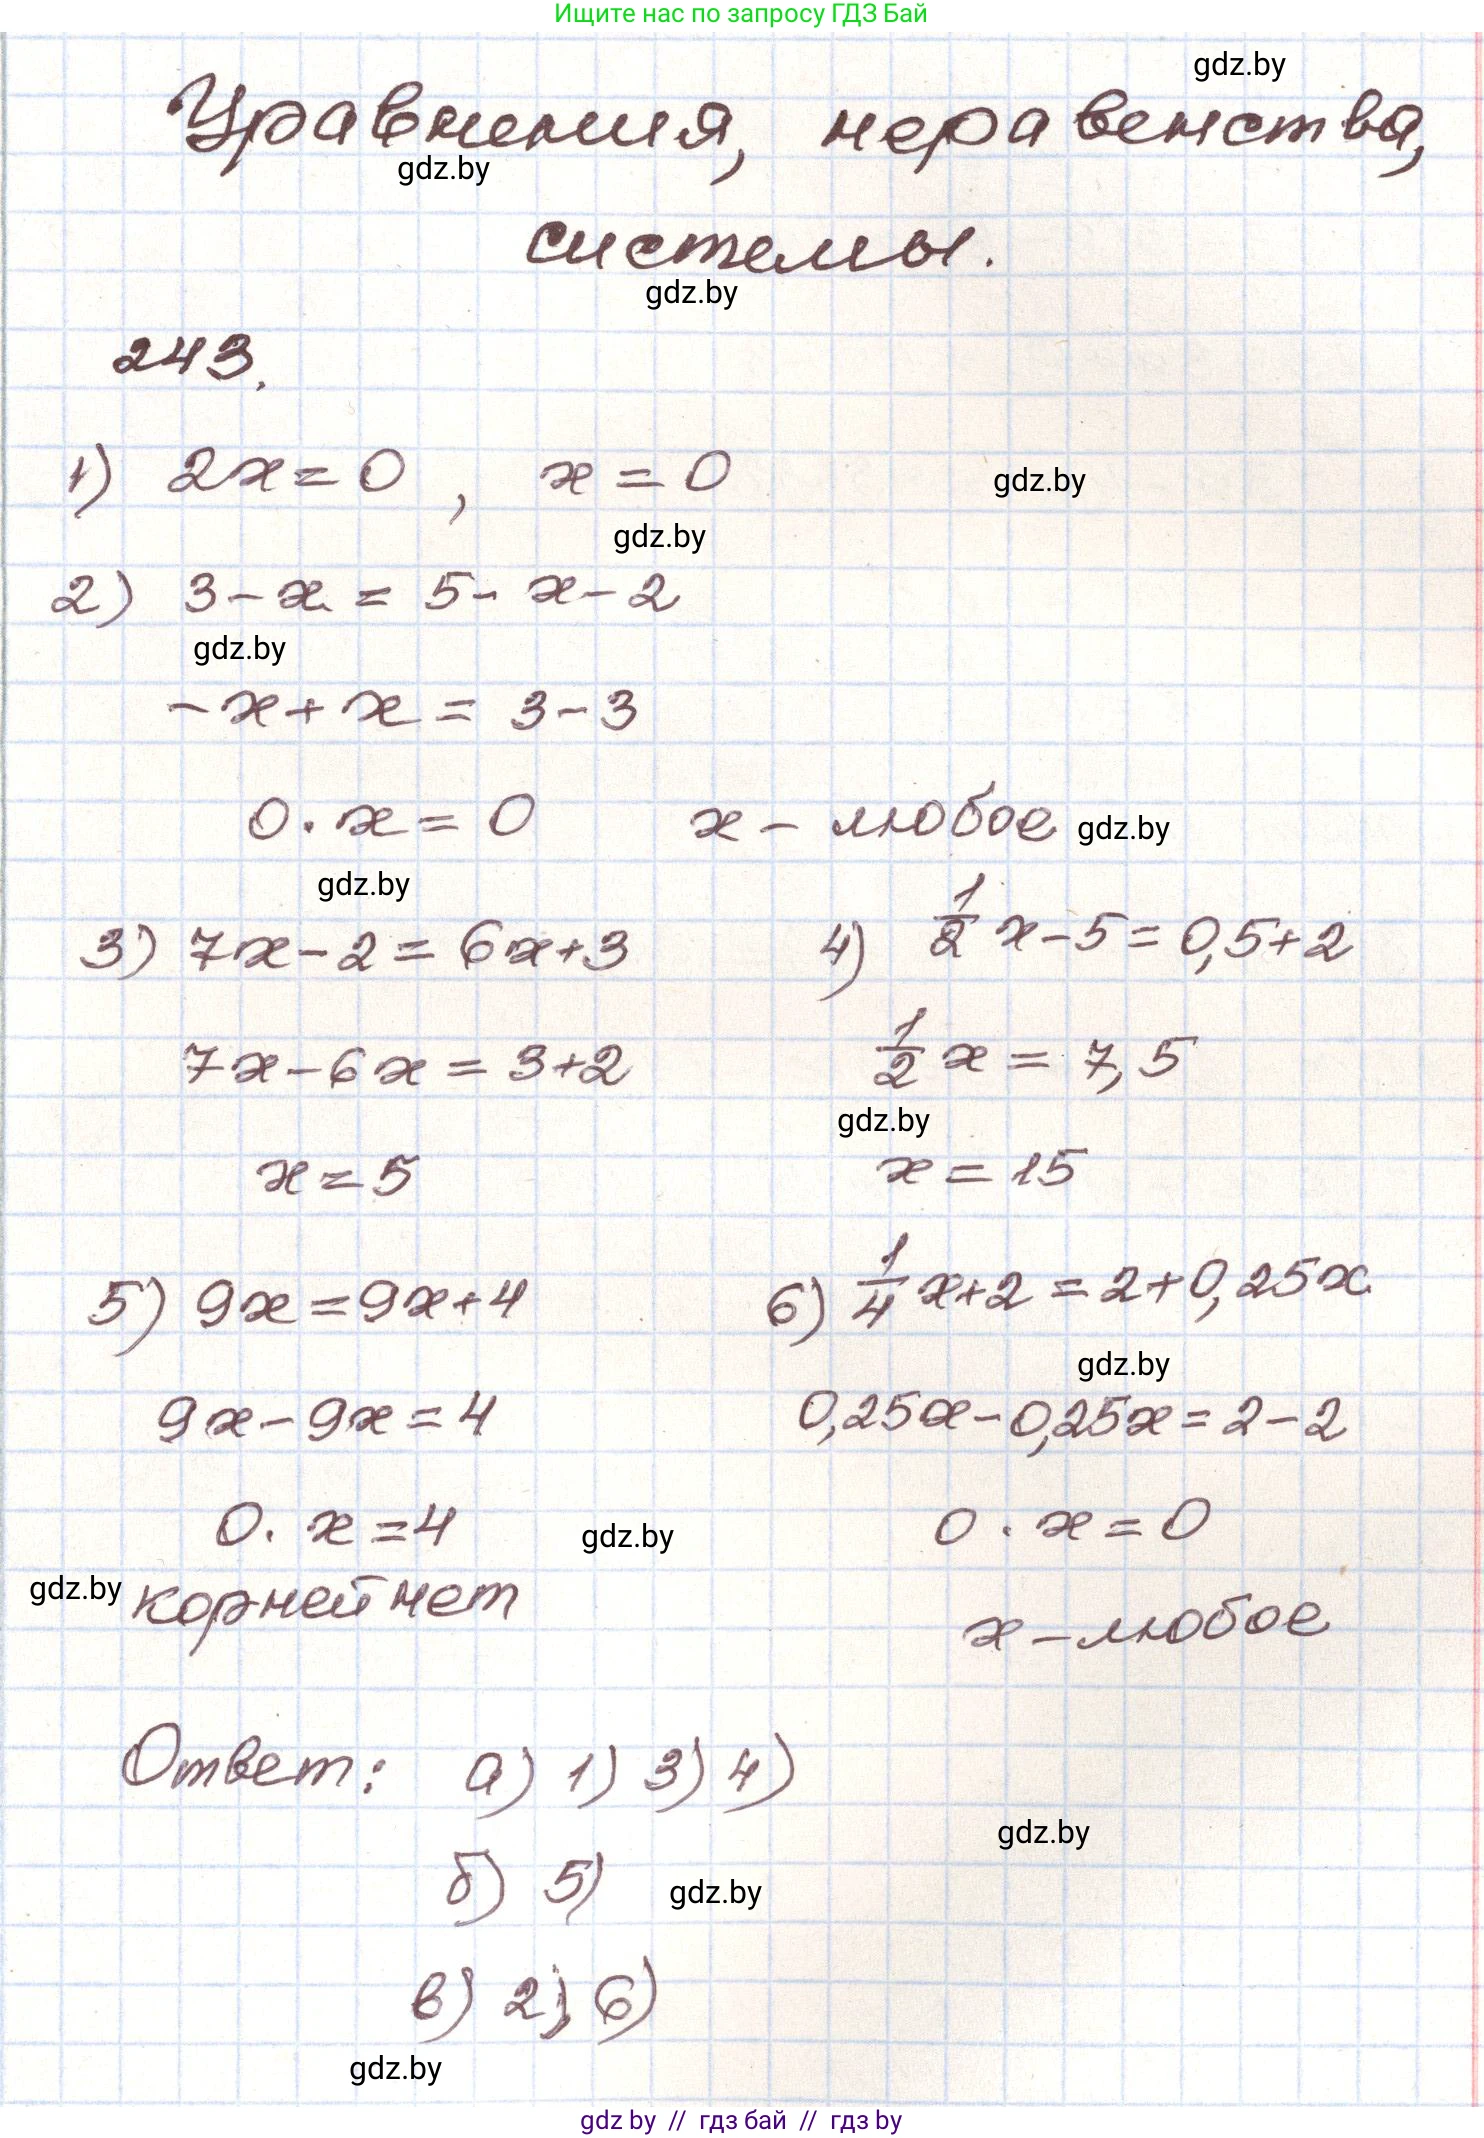 Ищите нас по запросу ГДЗ Бай
gdz.by
Уравнения, неравенства,
gdz.by
системы.
gdz.by
243.
1) 2x = 0 , x = 0
gdz.by
gdz.by
2) 3 - x = 5 - x - 2
gdz.by
-x + x = 3 - 3
0 · x = 0 x - любое gdz.by
gdz.by
3) 7x - 2 = 6x + 3
7x - 6x = 3 + 2
x = 5
4) 1/2 x - 5 = 0,5 + 2
1/2 x = 7,5
gdz.by
x = 15
5) 9x = 9x + 4
9x - 9x = 4
0 · x = 4
gdz.by
gdz.by корней нет
6) 1/4 x + 2 = 2 + 0,25x
gdz.by
0,25x - 0,25x = 2 - 2
0 · x = 0
x - любое
Ответ: а) 1) 3) 4)
gdz.by
б) 5) gdz.by
в) 2) 6)
gdz.by
gdz by // гдз бай // гдз by